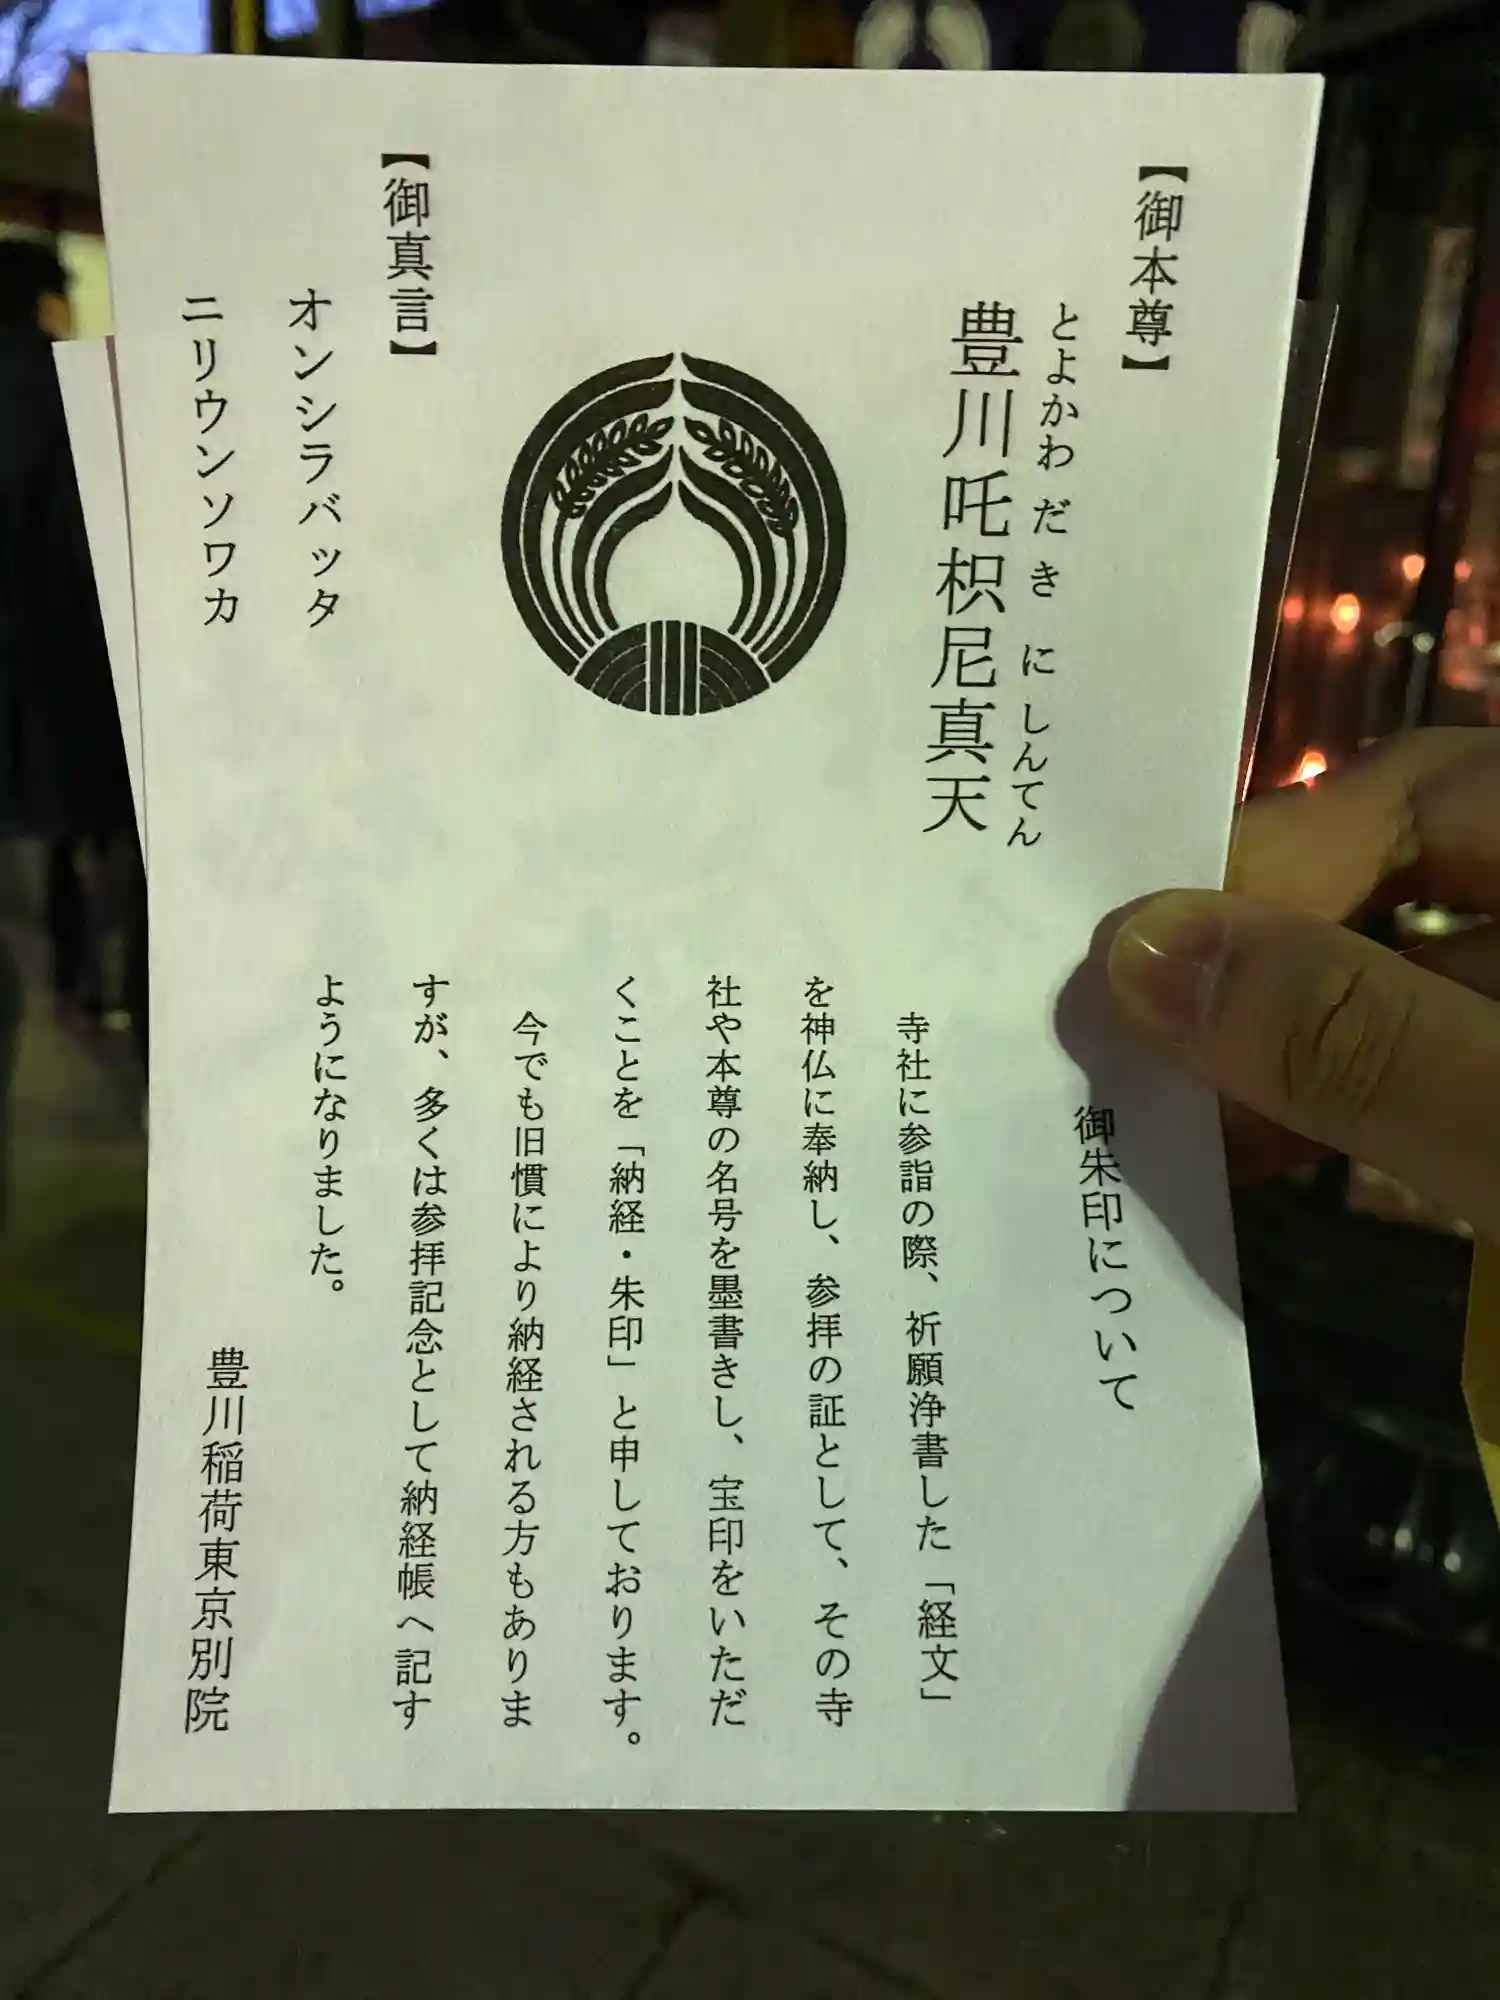 【御本尊】
とよかわ だ き に しんてん
豊川吒枳尼真天
【御真言】
オンシラバッタ
ニリウンソワカ
御朱印について
寺社に参詣の際、祈願浄書した「経文」
を神仏に奉納し、参拝の証として、その寺
社や本尊の名号を墨書きし、宝印をいただ
くことを「納経・朱印」と申しております。
今でも旧慣により納経される方もありま
すが、多くは参拝記念として納経帳へ記す
ようになりました。
豊川稲荷東京別院